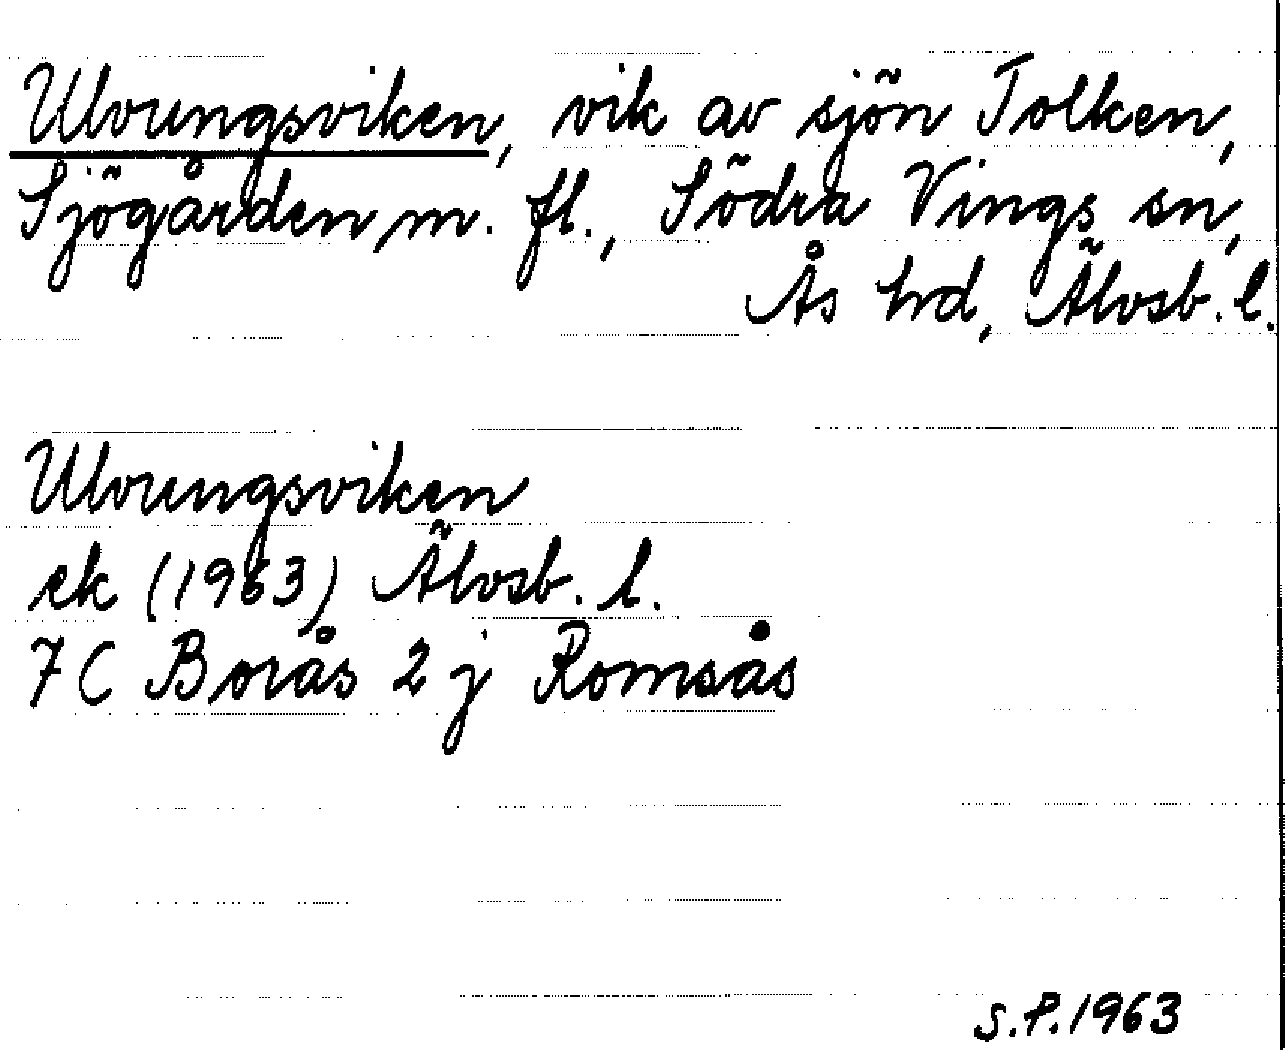 Ulvungsviken, vik av sjön Tolken,
Sjögården m. fl., Södra Vings sn,
Ås hrd, Älvsb. l.
Ulvungsviken
ek (1963) Älvsb. l.
7C Borås 2 j Romsås
S.P. 1963